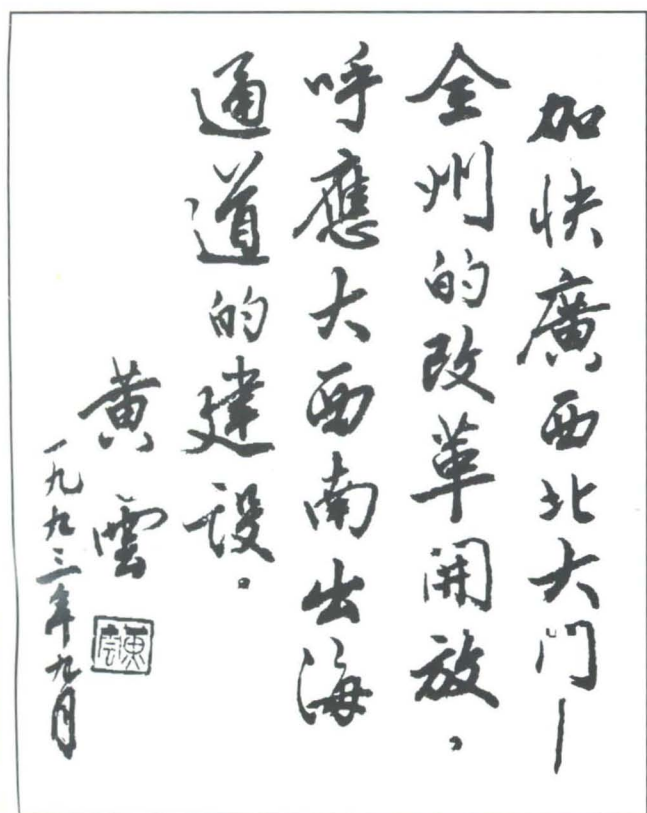 加快廣西北大門—
全州的改革開放，
呼應大西南出海
通道的建設。
黄雲
一九九三年九月
黄雲